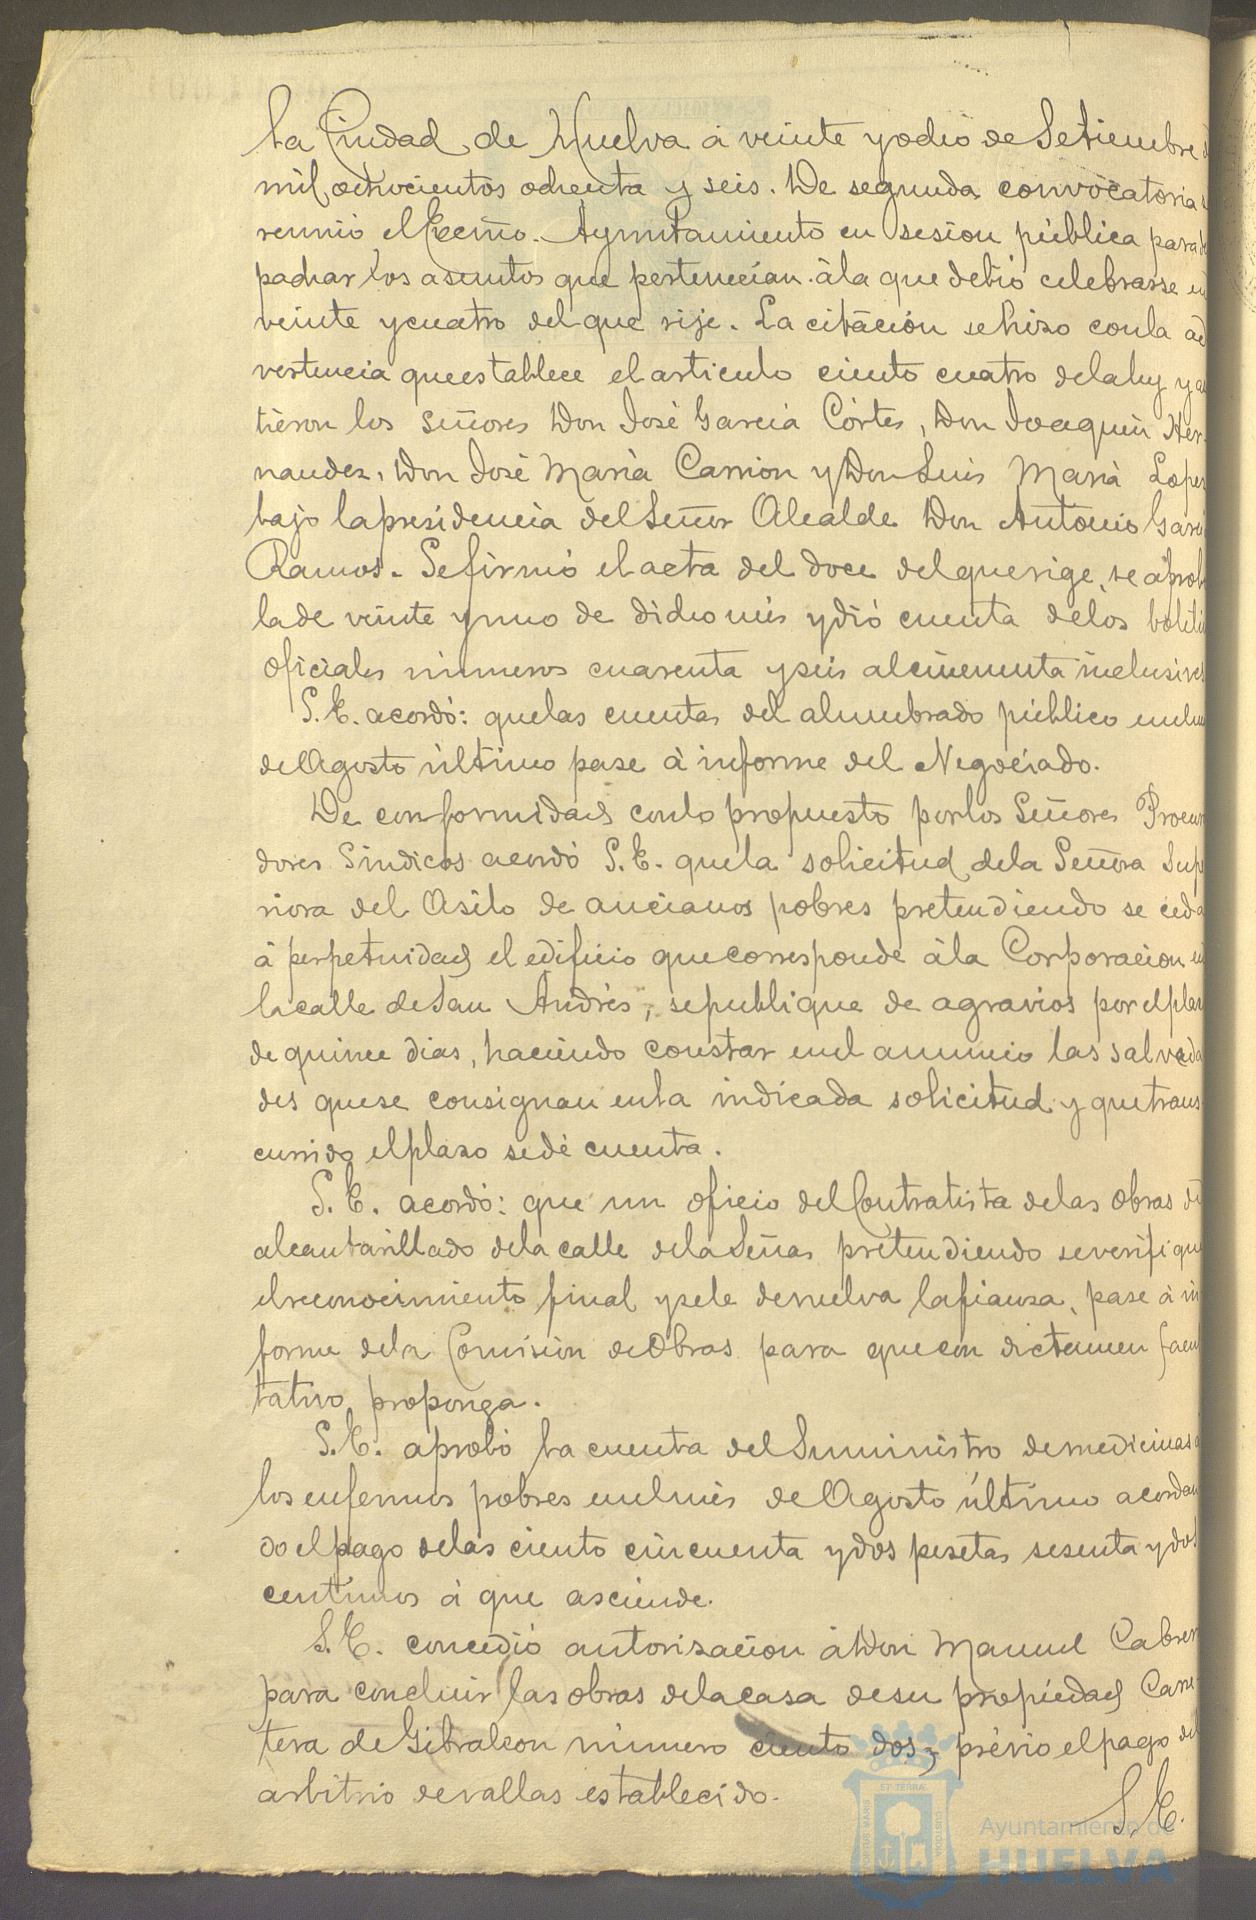 la Ciudad de Huelva á veinte y ocho de Setiembre d
mil ochocientos ochenta y seis. De segunda convocatoria s
reunió el Excmo. Ayuntamiento en sesion pública para de
pachar los asuntos que pertenecian á la que debió celebrarse en
veinte y cuatro del que rije. La citación se hizo con la ad
vertencia que establece el articulo ciento cuatro de la ley y as
tieron los señores Don José Garcia Córtes, Don Joaquin Her-
nandez, Don José Maria Carrion y Don Luis Maria Lopez
bajo la presidencia del Señor Alcalde Don Antonio Garci
Ramos. Se firmó el acta del doce del que rige, se aprob
la de veinte y uno de dicho mes y dió cuenta de los boleti
oficiales números cuarenta y seis al cincuenta inclusives
S. E. acordó: que las cuentas del alumbrado público en el m
de Agosto último pase á informe del Negociado.
De conformidad con lo propuesto por los Señores Procur
dores Sindicos acordó S. E. que la solicitud de la Señora Supe
riora del Asilo de ancianos pobres pretendiendo se ceda
á perpetuidad el edificio que corresponde á la Corporacion en
la calle de San Andrés, se publique de agravios por el plaz
de quince dias, haciendo constar en el anuncio las salveda
des que se consignan en la indicada solicitud y que trans
currido el plazo se dé cuenta.
S. E. acordó: que un oficio del Contratista de las obras de
alcantarillado de la calle de la Señas pretendiendo se verifique
el reconocimiento final y se le devuelva la fianza, pase á in
forme de la Comision de Obras para que con dictamen facul
tativo proponga.
S. E. aprobó la cuenta del Suministro de medicinas á
los enfermos pobres en el mes de Agosto último acordan
do el pago de las ciento cincuenta y dos pesetas sesenta y dos
centimos á que asciende.
S. E. concedió autorizacion á Don Manuel Cabrer
para concluir las obras de la casa de su propiedad Carre
tera de Gibraleon número ciento dos, prévio el pago del
arbitrio de vallas establecido.
S. E.
Ayuntamiento de
HUELVA